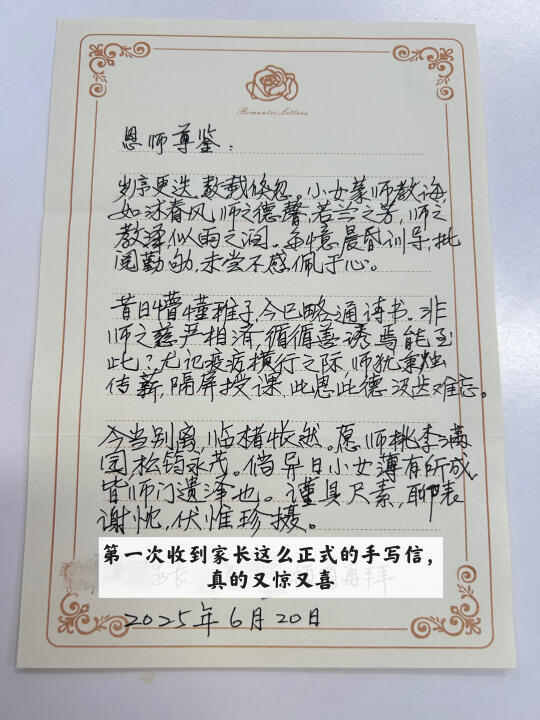 Romantic Letters
恩师尊鉴：
岁序更迭,数载倏忽。小女蒙师教诲,
如沐春风,师之德馨,若兰之芳,师之
教泽似雨之润。每忆晨昏训导,批
阅勤劬,未尝不感佩于心。
昔日懵懂稚子今已略通诗书。非
师之慈严相济,循循善诱,焉能至
此?尤记疫疠横行之际,师犹秉烛
传薪,隔屏授课,此恩此德没齿难忘。
今当别离,临楮怅然。愿师桃李满
园,松筠永茂。倘异日小女薄有所成,
皆师门遗泽也。谨具尺素,聊表
谢忱,伏惟珍摄。
第一次收到家长这么正式的手写信，
真的又惊又喜
再拜
2025年6月20日